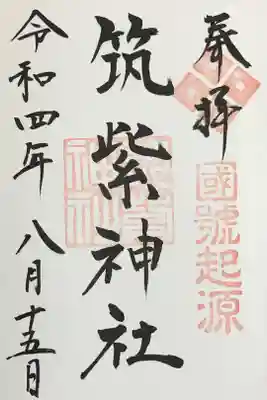 奉拝
國號起源
筑紫神社
令和四年八月十五日